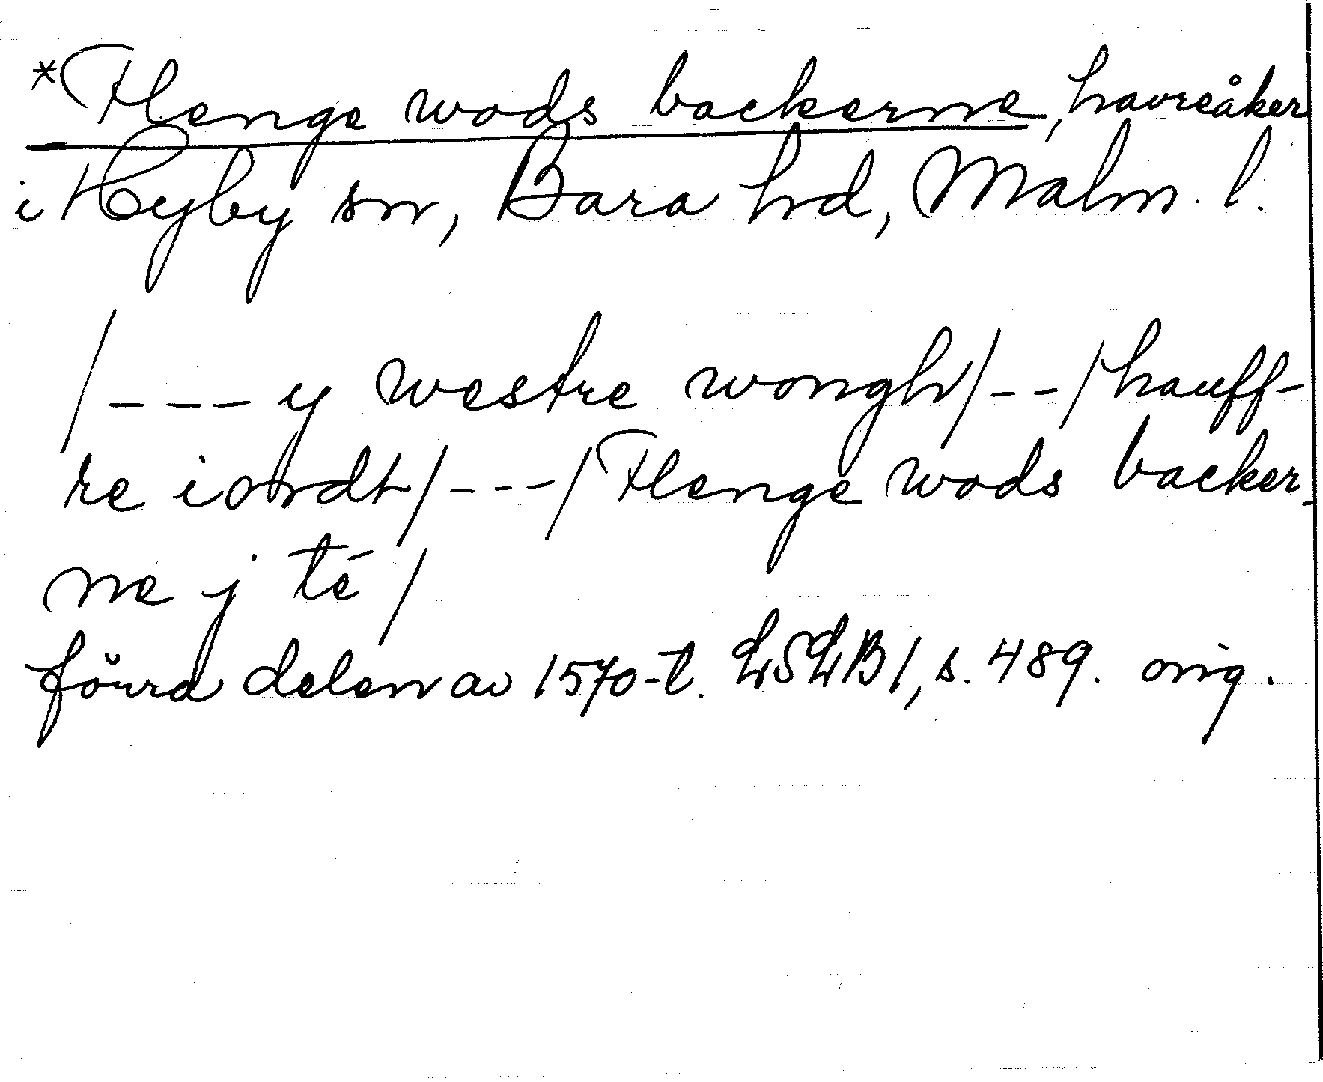 *Flenge wads backerne, havreåker
i Hyby sn, Bara hd, Malm. l.
/--- y westre wongh/--/hauff-
re iordt/---/Flenge wads backer-
ne j té/
förra delen av 1570-t. LSLB 1, s. 489. orig.